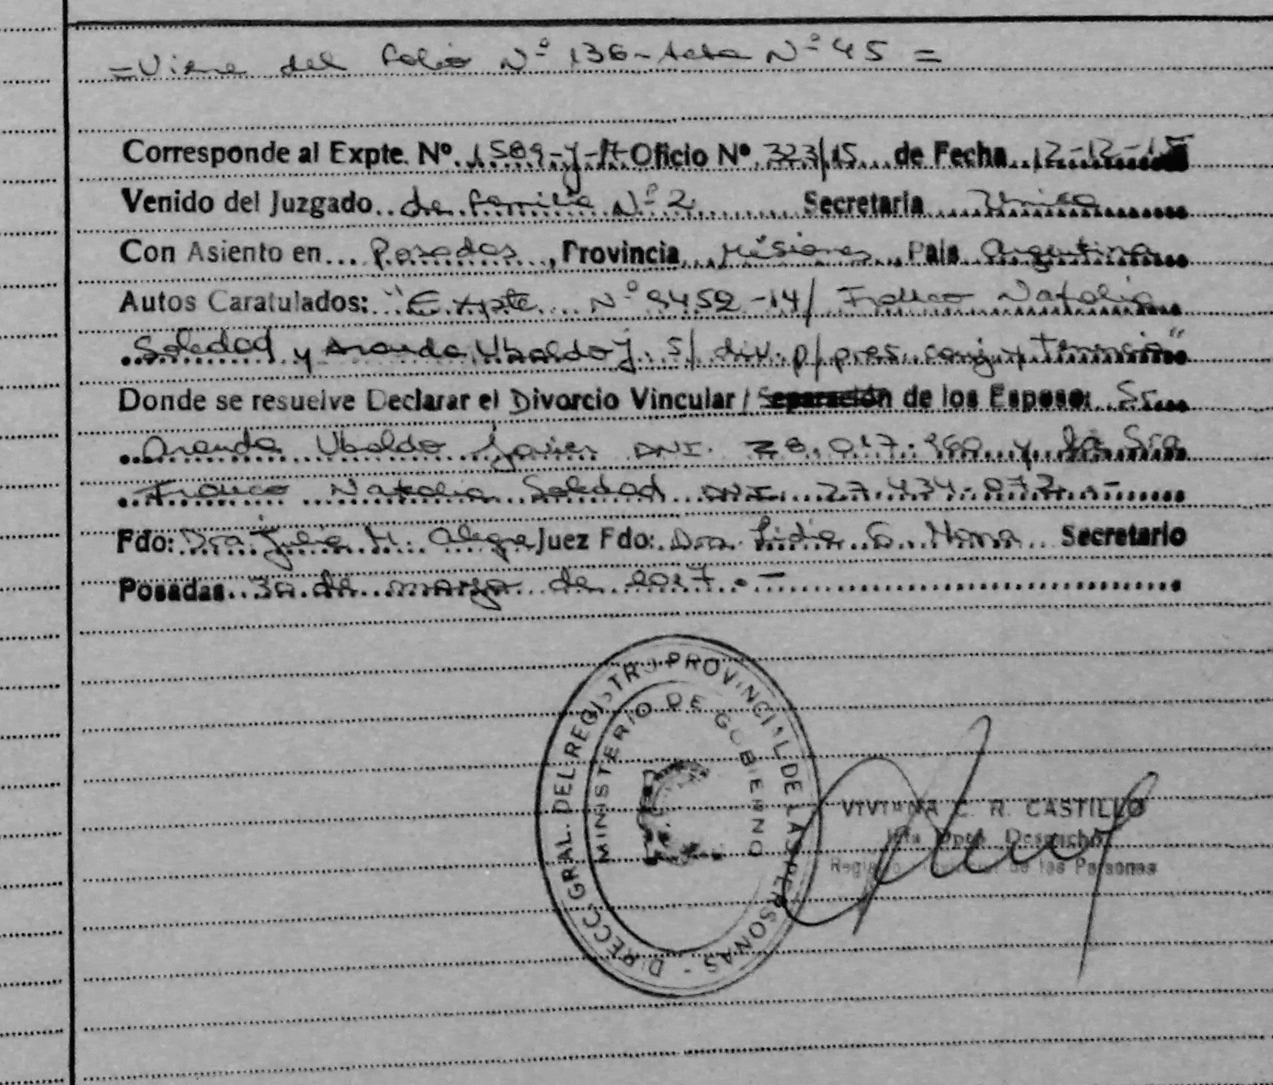 =Viene del folio Nº 136-Acta Nº 45=
Corresponde al Expte. Nº 1589-y-17 Oficio Nº 323/15 de Fecha 12-12-15
Venido del Juzgado de familia Nº 2 Secretaria Unica
Con Asiento en Posadas, Provincia Misiones, País Argentina
Autos Caratulados: "Expte Nº 9452-14/ Franco Natalia
Soledad y Aranda Ubaldo J. S/ div. p/ pres. conj. y tenencia"
Donde se resuelve Declarar el Divorcio Vincular / Separación de los Esposo: Sr.
Aranda Ubaldo Javier DNI. y la Sra
Franco Natalia Soledad DNI. 27.434.072.-
Fdo: Dra Julia M. Alegre Juez Fdo: Dra. Lidia Secretario
Posadas 30 de marzo de 2017.-
DIRECC. GRAL. DEL REGISTRO PROVINCIAL DE LAS PERSONAS -
MINISTERIO DE GOBIERNO
VIVIANA C. R. CASTILLO
Jefa Dpto. Despacho
Registro Provincial de las Personas